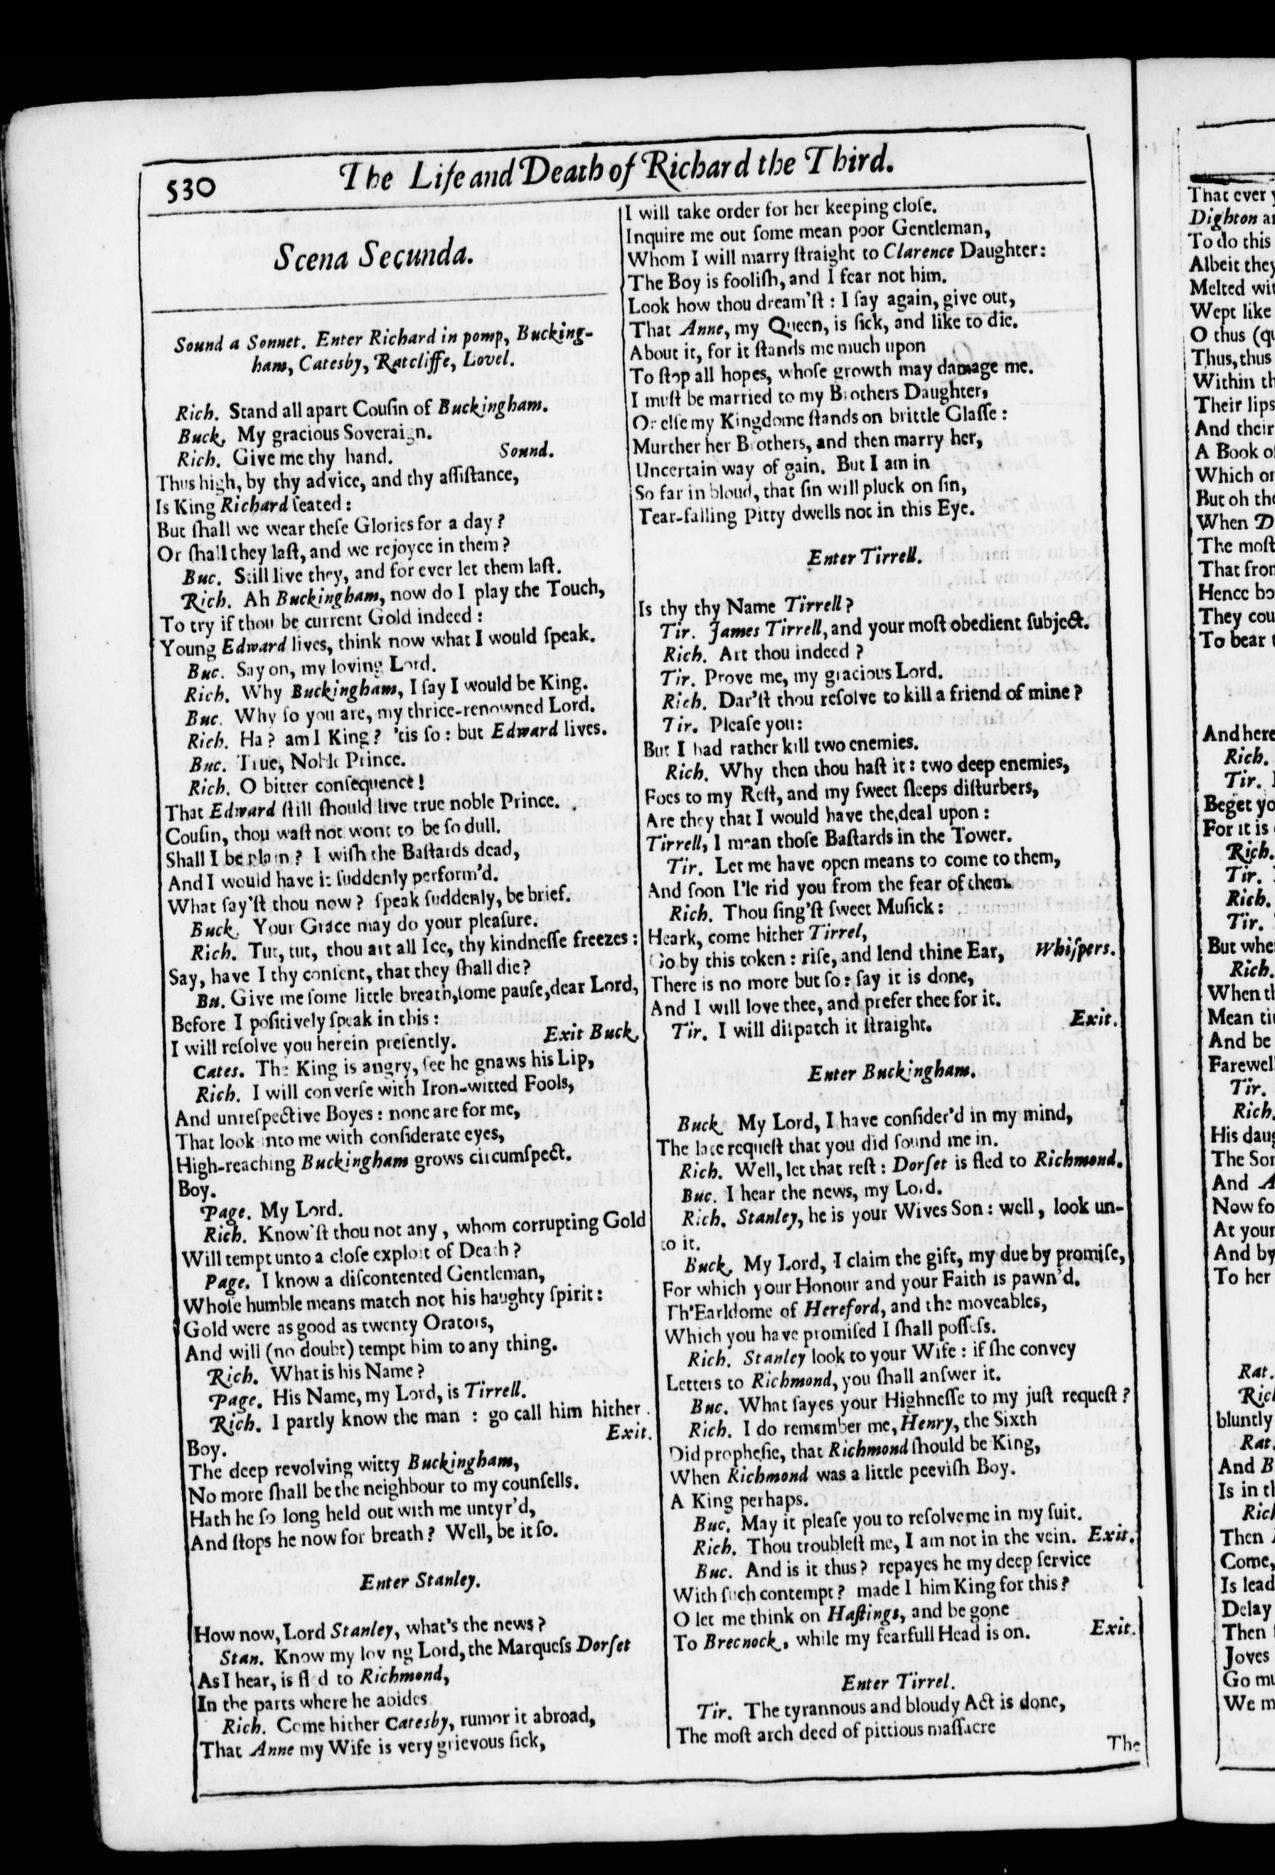 530
The Life and Death of Richard the Third.
Scena Secunda.
Sound a Sonnet. Enter Richard in pomp, Bucking-
ham, Catesby, Ratcliffe, Lovel.
Rich. Stand all apart Couſin of Buckingham.
Buck. My gracious Soveraign.
Rich. Give me thy hand. Sound.
Thus high, by thy advice, and thy aſſiſtance,
Is King Richard ſeated:
But ſhall we wear theſe Glories for a day?
Or ſhall they laſt, and we rejoyce in them?
Buc. Still live they, and for ever let them laſt.
Rich. Ah Buckingham, now do I play the Touch,
To try if thou be current Gold indeed:
Young Edward lives, think now what I would ſpeak.
Buc. Say on, my loving Lord.
Rich. Why Buckingham, I ſay I would be King.
Buc. Why ſo you are, my thrice-renowned Lord.
Rich. Ha? am I King? 'tis ſo: but Edward lives.
Buc. True, Noble Prince.
Rich. O bitter conſequence!
That Edward ſtill ſhould live true noble Prince.
Couſin, thou waſt not wont to be ſo dull.
Shall I be plain? I wiſh the Baſtards dead,
And I would have it ſuddenly perform'd.
What ſay'ſt thou now? ſpeak ſuddenly, be brief.
Buck. Your Grace may do your pleaſure.
Rich. Tut, tut, thou art all Ice, thy kindneſſe freezes:
Say, have I thy conſent, that they ſhall die?
Bu. Give me ſome little breath, ſome pauſe, dear Lord,
Before I poſitively ſpeak in this:
I will reſolve you herein preſently. Exit Buck.
Cates. The King is angry, ſee he gnaws his Lip,
Rich. I will converſe with Iron-witted Fools,
And unreſpective Boyes: none are for me,
That look into me with conſiderate eyes,
High-reaching Buckingham grows circumſpect.
Boy.
Page. My Lord.
Rich. Know'ſt thou not any, whom corrupting Gold
Will tempt unto a cloſe exploit of Death?
Page. I know a diſcontented Gentleman,
Whoſe humble means match not his haughty ſpirit:
Gold were as good as twenty Orators,
And will (no doubt) tempt him to any thing.
Rich. What is his Name?
Page. His Name, my Lord, is Tirrell.
Rich. I partly know the man: go call him hither.
Boy. Exit.
The deep revolving witty Buckingham,
No more ſhall be the neighbour to my counſells.
Hath he ſo long held out with me untyr'd,
And ſtops he now for breath? Well, be it ſo.
Enter Stanley.
How now, Lord Stanley, what's the news?
Stan. Know my lov ng Lord, the Marqueſs Dorſet
As I hear, is fled to Richmond,
In the parts where he abides
Rich. Come hither Catesby, rumor it abroad,
That Anne my Wife is very grievous ſick,
I will take order for her keeping cloſe.
Inquire me out ſome mean poor Gentleman,
Whom I will marry ſtraight to Clarence Daughter:
The Boy is fooliſh, and I fear not him.
Look how thou dream'ſt: I ſay again, give out,
That Anne, my Queen, is ſick, and like to die.
About it, for it ſtands me much upon
To ſtop all hopes, whoſe growth may damage me.
I muſt be married to my Brothers Daughter,
Or elſe my Kingdome ſtands on brittle Glaſſe:
Murther her Brothers, and then marry her,
Uncertain way of gain. But I am in
So far in bloud, that ſin will pluck on ſin,
Tear-falling Pitty dwells not in this Eye.
Enter Tirrell.
Is thy thy Name Tirrell?
Tir. James Tirrell, and your moſt obedient ſubject.
Rich. Art thou indeed?
Tir. Prove me, my gracious Lord.
Rich. Dar'ſt thou reſolve to kill a friend of mine?
Tir. Pleaſe you:
But I had rather kill two enemies.
Rich. Why then thou haſt it: two deep enemies,
Foes to my Reſt, and my ſweet ſleeps diſturbers,
Are they that I would have the, deal upon:
Tirrell, I mean thoſe Baſtards in the Tower.
Tir. Let me have open means to come to them,
And ſoon I'le rid you from the fear of them.
Rich. Thou ſing'ſt ſweet Muſick:
Heark, come hither Tirrel,
Go by this token: riſe, and lend thine Ear, Whiſpers.
There is no more but ſo: ſay it is done,
And I will love thee, and prefer thee for it.
Tir. I will diſpatch it ſtraight. Exit.
Enter Buckingham.
Buck. My Lord, I have conſider'd in my mind,
The late requeſt that you did ſound me in.
Rich. Well, let that reſt: Dorſet is fled to Richmond.
Buc. I hear the news, my Lord.
Rich. Stanley, he is your Wives Son: well, look un-
to it.
Buck. My Lord, I claim the gift, my due by promiſe,
For which your Honour and your Faith is pawn'd.
Th'Earldome of Hereford, and the moveables,
Which you have promiſed I ſhall poſſeſs.
Rich. Stanley look to your Wife: if ſhe convey
Letters to Richmond, you ſhall anſwer it.
Buc. What ſayes your Highneſſe to my juſt requeſt?
Rich. I do remember me, Henry, the Sixth
Did propheſie, that Richmond ſhould be King,
When Richmond was a little peeviſh Boy.
A King perhaps.
Buc. May it pleaſe you to reſolve me in my ſuit.
Rich. Thou troubleſt me, I am not in the vein. Exit.
Buc. And is it thus? repayes he my deep ſervice
With ſuch contempt? made I him King for this?
O let me think on Haſtings, and be gone
To Brecnock, while my fearfull Head is on. Exit.
Enter Tirrel.
Tir. The tyrannous and bloudy Act is done,
The moſt arch deed of pittious maſſacre
The
That ever
Dighton
To do this
Albeit they
Melted
Wept like
O thus
Thus, thus
Within
Their lips
And their
A Book
Which
But oh
When
The moſt
That
Hence
They
To bear
And here
Rich.
Tir.
Beget
For it is
Rich.
Tir.
Rich.
Tir.
But
Rich.
When
Mean
And be
Farewel
Tir.
Rich.
His
The
And
Now
At your
And by
To her
Rat.
Rich
bluntly
Rat.
And
Is in
Rich
Then
Come,
Is lead
Delay
Then
Joves
Go
We